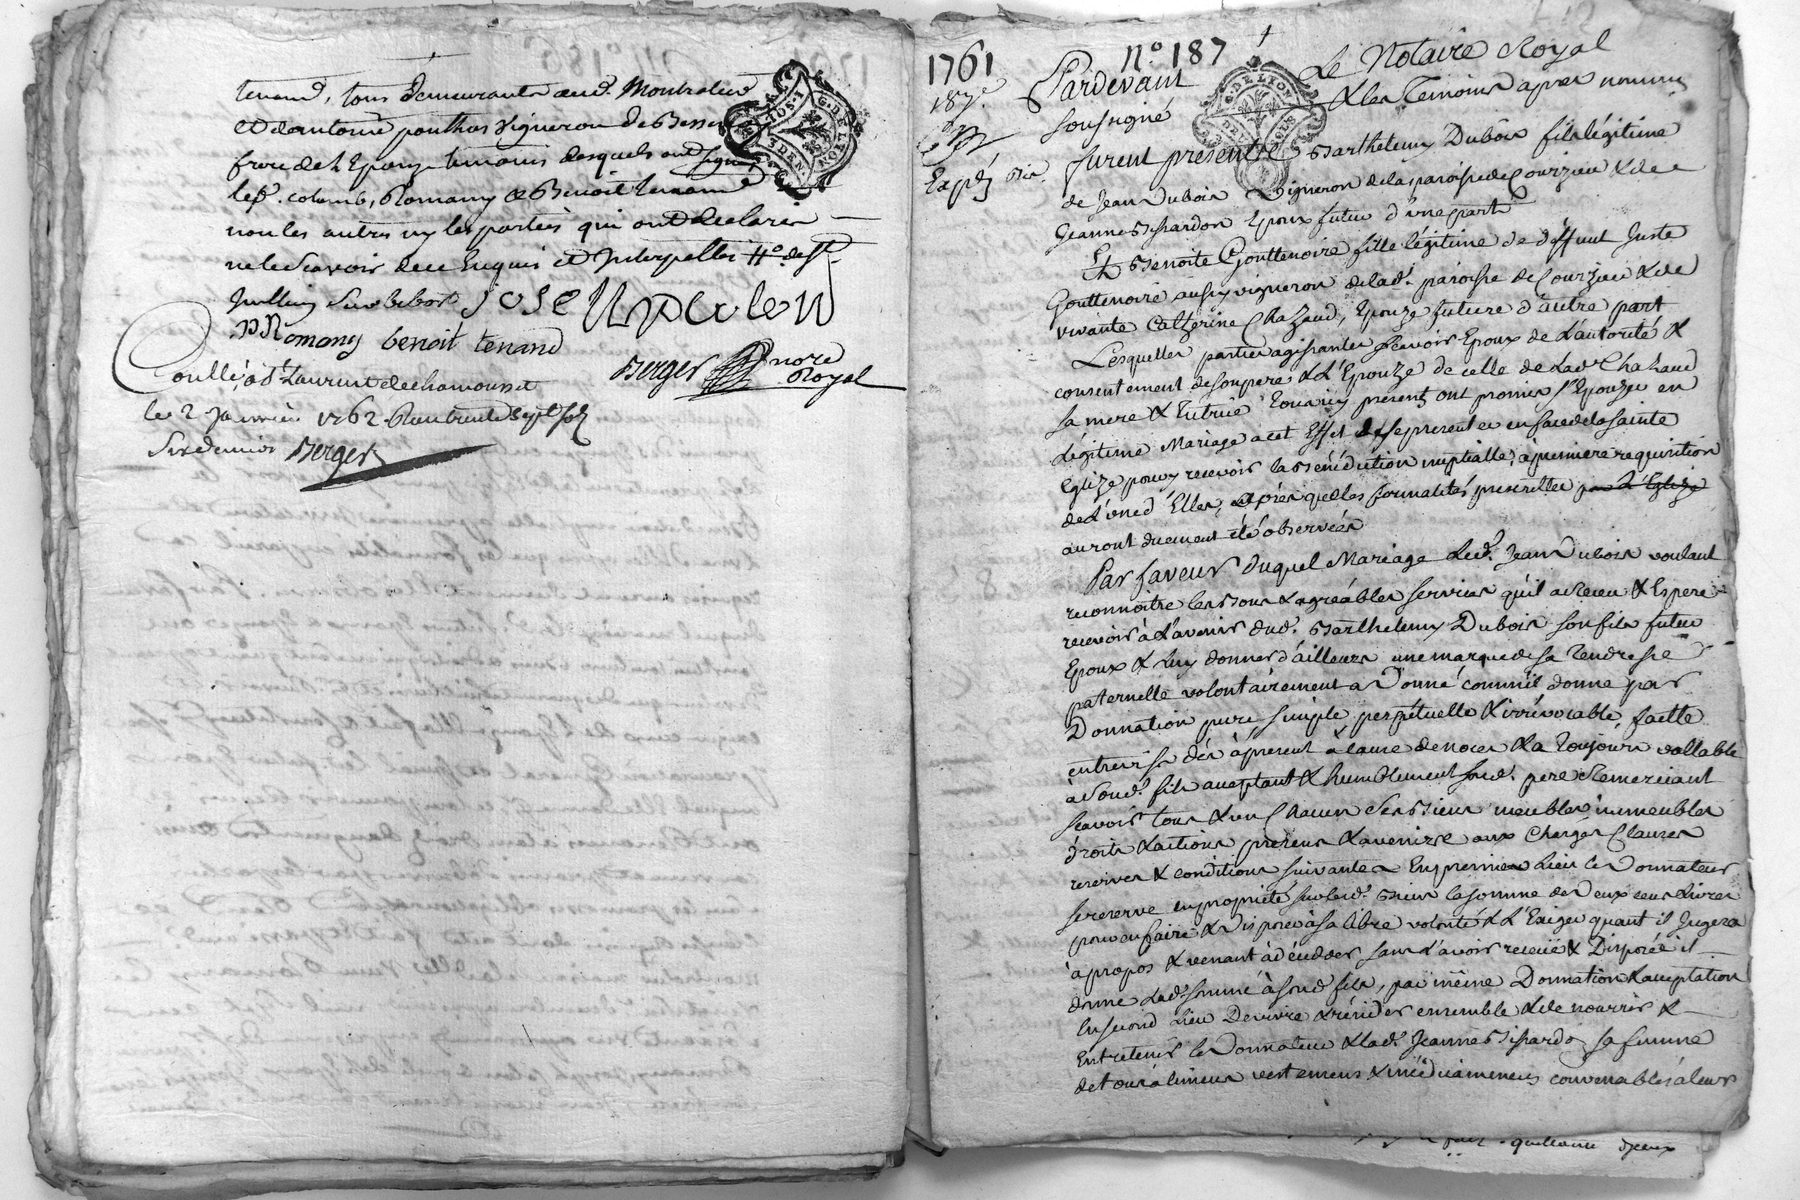 tenand, tous demeurants aud. Montrolier
et d'antoine ponthus vigneron de Bessen
frere de l'Epouze temoins desquels ont signé
les s. colomb, Romany & Benoit tenand
non les autres ny les parties qui ont declaré
ne le scavoir de ce Enquis et Interpellés
Jullien Sur le bot josept
P Romany benoit tenand
Berger nore Royal
Conllé à St Laurent de chamousset
le 2 Janvier 1762 Reçu trente sept sols
Six deniers Berger
1761 N.o 187
187e
Expéd.
Pardevant Le Notaire Royal
soussigné & les Temoins apres nommés
furent présents Barthelemy Dubois fils légitime
de Jean Dubois Vigneron de la paroisse de Courzieu & de
Jeanne Bissardon Epoux futur d'une part
Et Benoite Gouttenoire fille légitime de deffunt Juste
Gouttenoire aussy vigneron de lad. paroisse de Courzieu & de
vivante Catherine Chazaud, Epouze future d'autre part
Lesquelles parties agissantes scavoir Epoux de L'autorité &
consentement de son pere & L'Epouze de celle de Lad. Chazaud
sa mere & Tutrice Touts icy présents ont promis s'Epouzer en
Légitime Mariage a cet Effet de se presenter en face de la sainte
Eglize pour y recevoir la Bénédiction nuptialle, à premiere requisition
de L'une d'Elles, après que les formalités prescrittes par L'Eglize
auront duement été observées
Par faveur duquel Mariage Led. Jean Dubois voulant
reconnoitre les Bons & agréables services qu'il a Receu & Espere
recevoir à L'avenir dud. Barthelemy Dubois son fils futur
Epoux & Luy donner d'ailleurs une marque de sa Tendresse
paternelle volontairement a Donné comme il donne par
Donnation pure simple perpétuelle & irrévocable, faitte
entrevifs dès à présent à cause de noces & à Toujours vallable
à Soud. fils acceptant & humblement soud. pere Remerciant
scavoir tous & un Chacun Ses Biens meubles immeubles
droits & actions présens & avenirs aux Charges Clauzes
reserves & conditions suivantes En premier Lieu le Donnateur
se reserve en propriété sur lesd. Biens la somme de Deux cens Livres
pour en faire & Disposer à sa libre volonté & L'Exiger quant il Jugera
à propos & venant à décéder sans l'avoir receüe & Disposée il
donne Lad. somme à soud. fils, par même Donnation & acceptation
En second Lieu De vivre & résider ensemble & de nourrir &
Entretenir le Donnateur & lad. Jeanne Bissardon sa femme
de tous alimens vestemens & médicamens convenables à leur